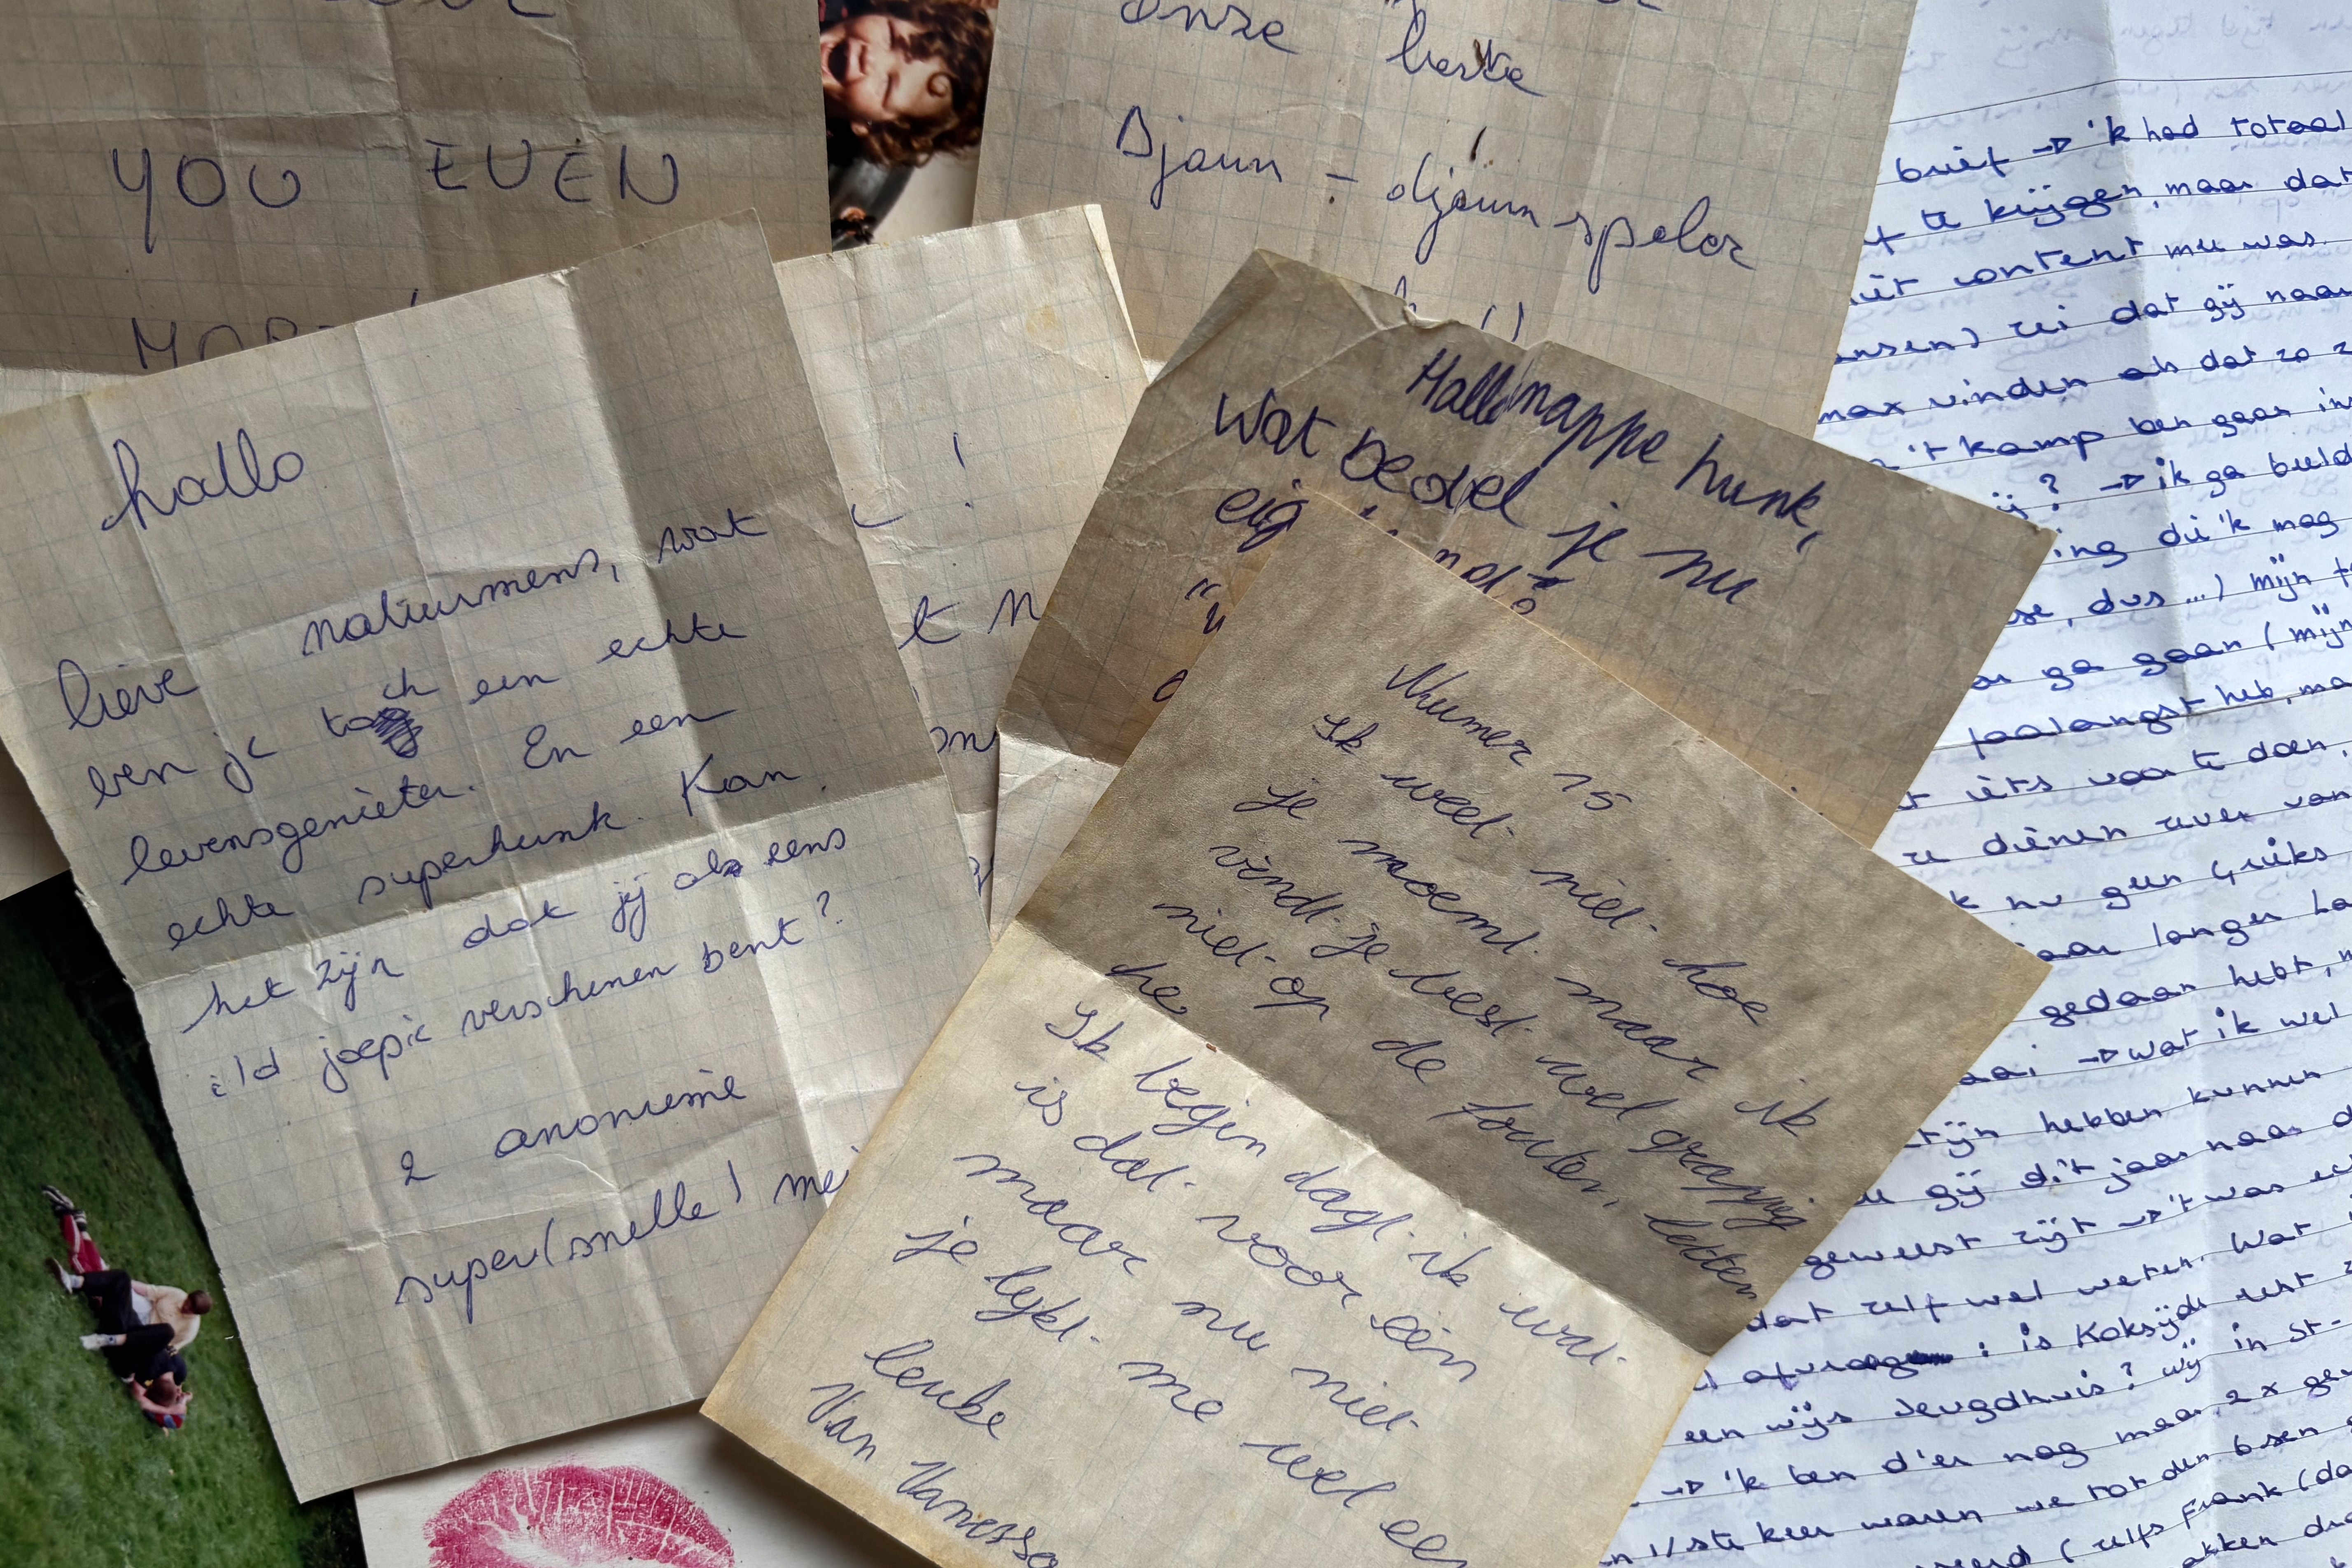 YOU EVEN
onze beste
Djaun - djaun speler
hallo
lieve natuurmens, wat
ben je toch een echte
levensgenieter. En een
echte superhunk. Kan
het zijn dat jij al eens
i/d joepie verschenen bent?
2 anonieme
super(snelle) mei
Hallo knappe hunk,
Wat bedoel je nu
eig
Nummer 15
Ik weet niet hoe
je noemt maar ik
vindt je best wel grappig
niet op de fouten letten
he
Ik begin dagt ik wat
is dat voor één
maar nu niet
je lykt me wel een
leuke
Van Vanessa
brief → 'k had totaal
te krijgen, maar dat
niet content mee was.
ansen) zei dat gij naar
max vinden als dat zo
't kamp ben gaan in
? → ik ga beeld
ing die 'k mag
se, dus...) mijn
ga gaan (mijn
faalangst heb, ma
iets voor te doen,
ze dienen zever van
k nu geen Grieks
jaar langer
gedaan hebt,
aai → wat ik wel
zijn hebben kunnen
gij dit jaar naar
geweest zijt → 't was
dat zelf wel weten. Wat
: is Koksijde echt
een wijs Jeugdhuis? wij in St-
→ 'k ben d'er nog maar 2x
1/ste keer waren we tot den 6sen
(zelfs Frank (da